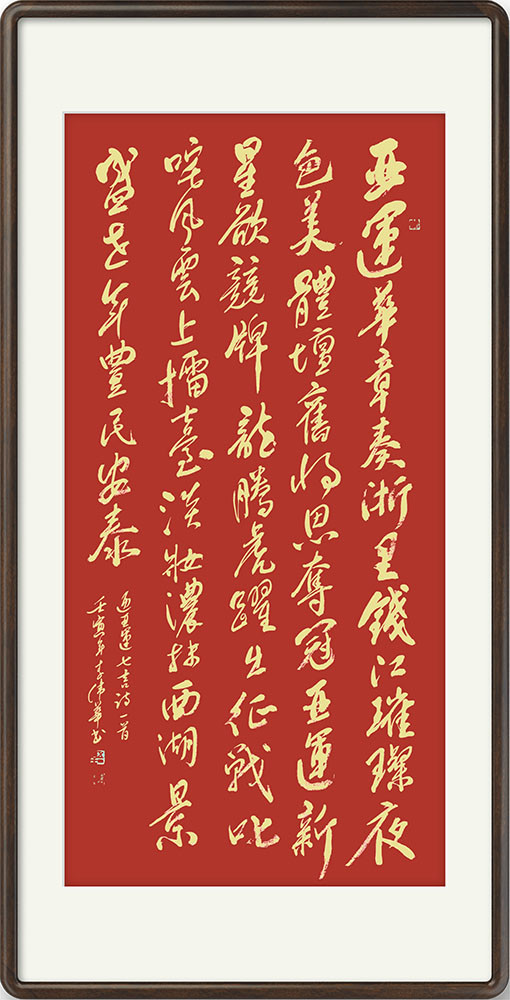 亞運華章奏浙里錢江璀璨夜
色美體壇舊將思奪冠亞運新
星欲競牌龍騰虎躍生征戰叱
咤風雲上擂臺淡妝濃抹西湖景
盛世年豐民安泰
迎亞運七言詩一首
壬寅年李偉華書